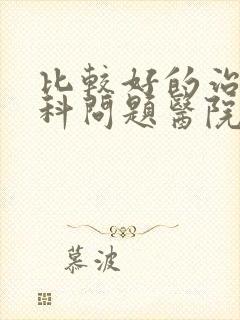 比較好的治
科問題醫院
慕波